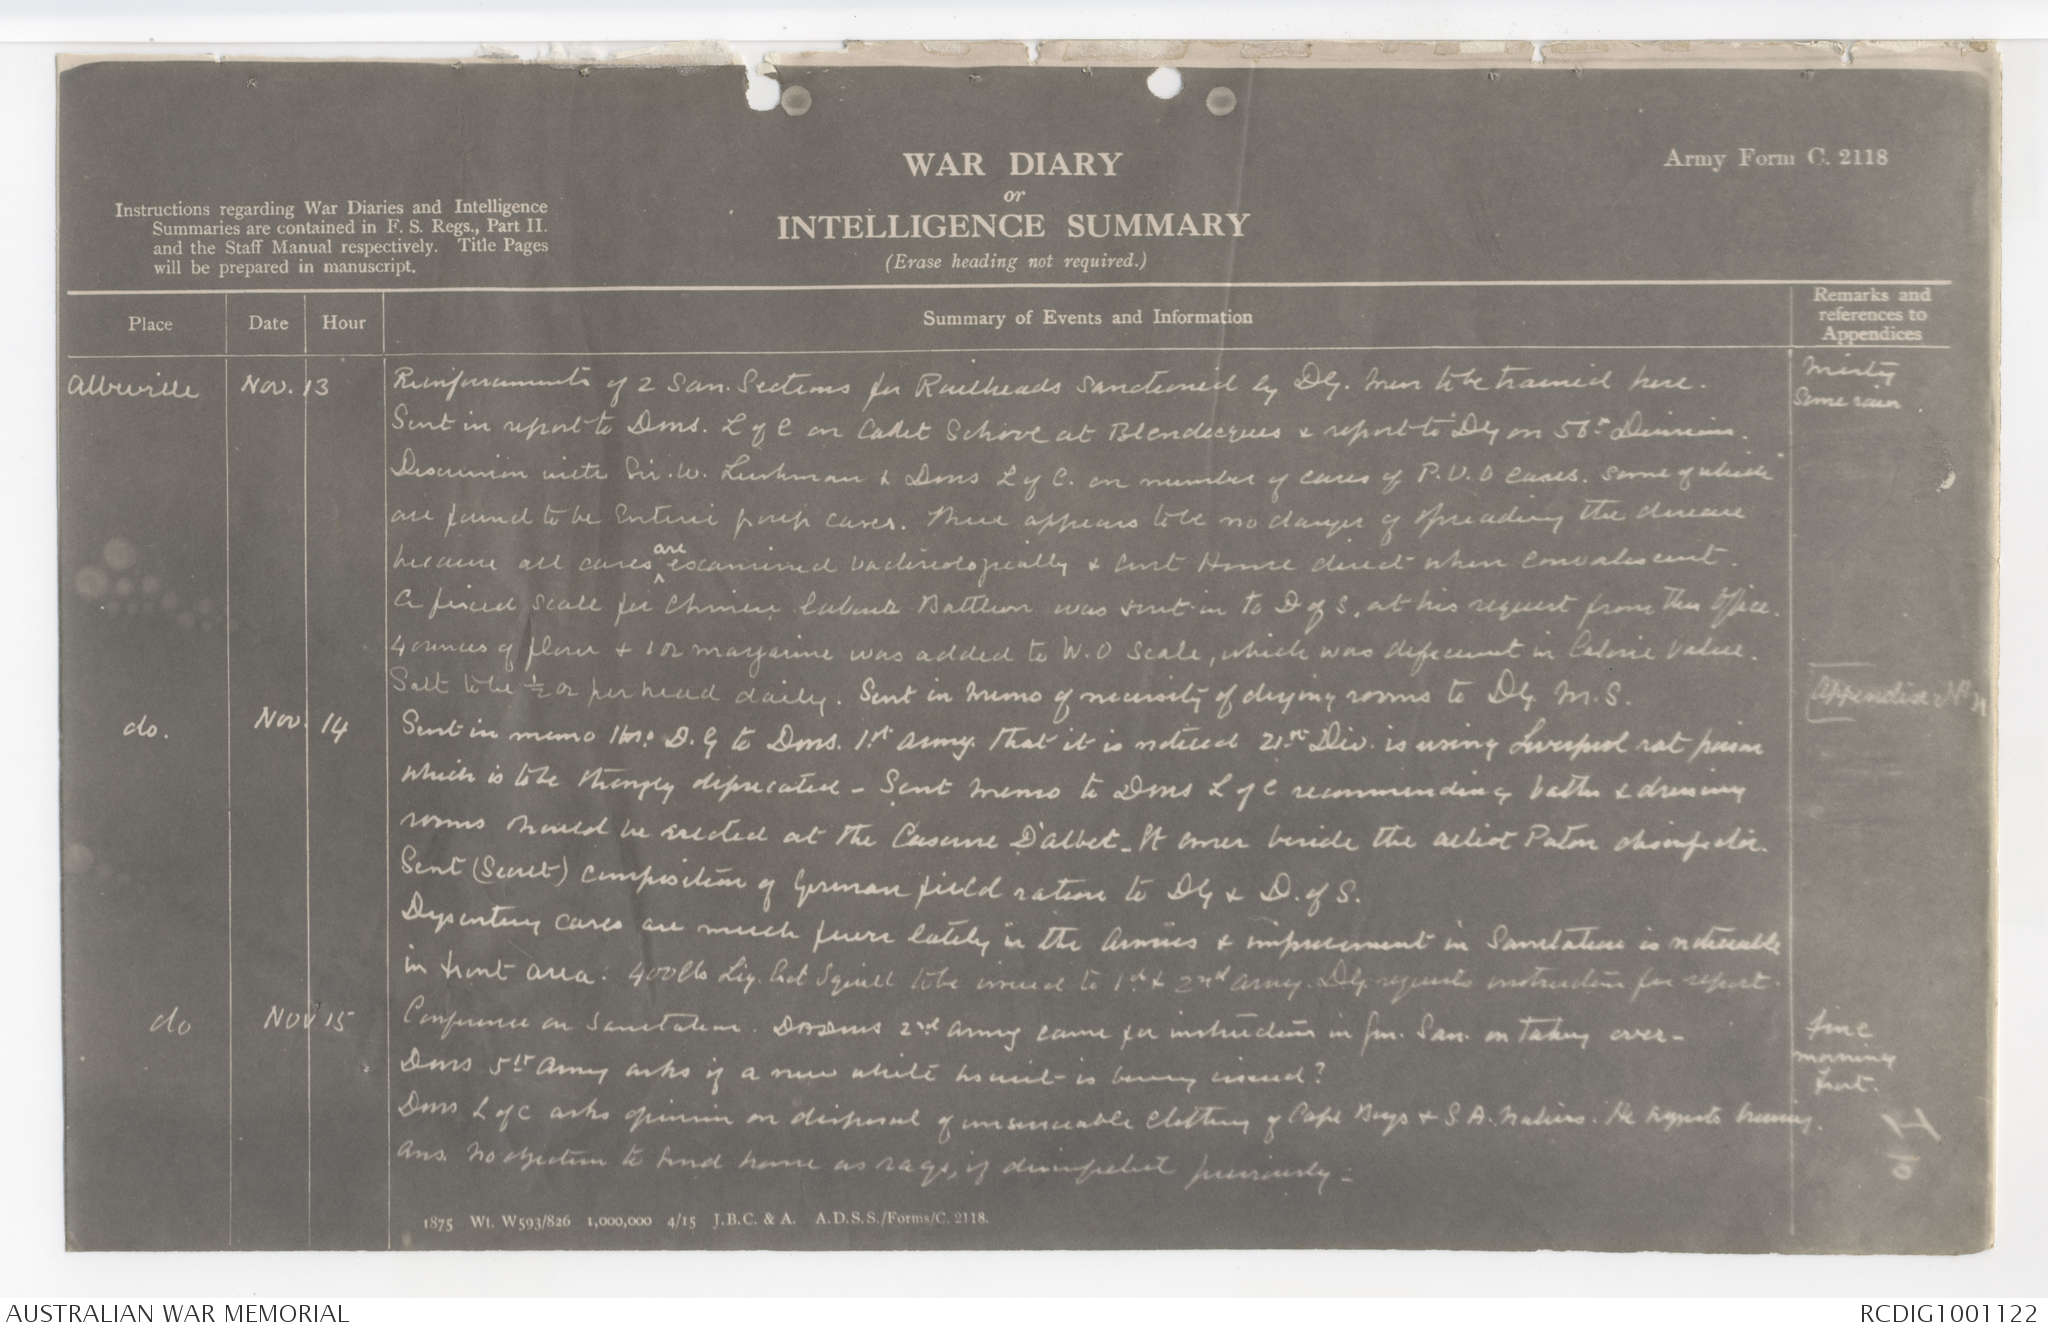 Army Form C. 2118
WAR DIARY
or
INTELLIGENCE SUMMARY
(Erase heading not required.)
Instructions regarding War Diaries and Intelligence
Summaries are contained in F. S. Regs., Part II.
and the Staff Manual respectively. Title Pages
will be prepared in manuscript.
Place Date Hour Summary of Events and Information Remarks and references to Appendices
Abbeville Nov. 13 Reinforcements of 2 San. Sections for Railheads sanctioned by DG. Men to be trained here. Misty
Some rain.
Sent in report to Dms. L of C on Cadet School at Blendecques & report to DG on 56th Division.
Discussion with Sir. W. Leishman & Dms L of C. on number of cases of P.U.O cases. some of which
are found to be Enteric group cases. There appears to be no danger of spreading the disease
because all cases are examined bacteriologically & sent Home direct when convalescent.
A fixed scale for Chinese Labour Battlion was sent in to D of S, at his request from this Office.
4 ounces of flour & 1 oz margarine was added to W.O Scale, which was deficient in Calorie value.
Salt to be ½ oz per head daily. Sent in memo of necessity of drying rooms to DG M.S. Appendix No
do. Nov. 14 Sent in memo D.G to Dms. 1st Army. that it is noticed 21st Div. is using Liverpool rat poison
which is to be strongly deprecated - Sent memo to Dms L of C recommending baths & dressing
rooms should be erected at the Caserne D'albret - St omer beside the Paton disinfector.
Sent (Secret) composition of German field ration to DG & D. of S.
Dysentery cases are much fewer lately in the Armies & improvement in Sanitation is noticeable
in front area. 400 lbs Liq. Ext Squill to be issued to 1st & 2nd Army. DG requests instruction for report.
do Nov 15 Conference on Sanitation. 2nd Army came for instruction in San. on taking over - fine
morning
frost.
Dms 5th Army asks if a new white biscuit is being issued?
Dms L of C asks opinion on disposal of unserviceable clothing of Cape Boys & S.A. Natives. He suggests burning.
Ans. No objection to send home as rags, if disinfected previously -
1875 Wt. W593/826 1,000,000 4/15 J.B.C. & A. A.D.S.S./Forms/C. 2118.
AUSTRALIAN WAR MEMORIAL
RCDIG1001122